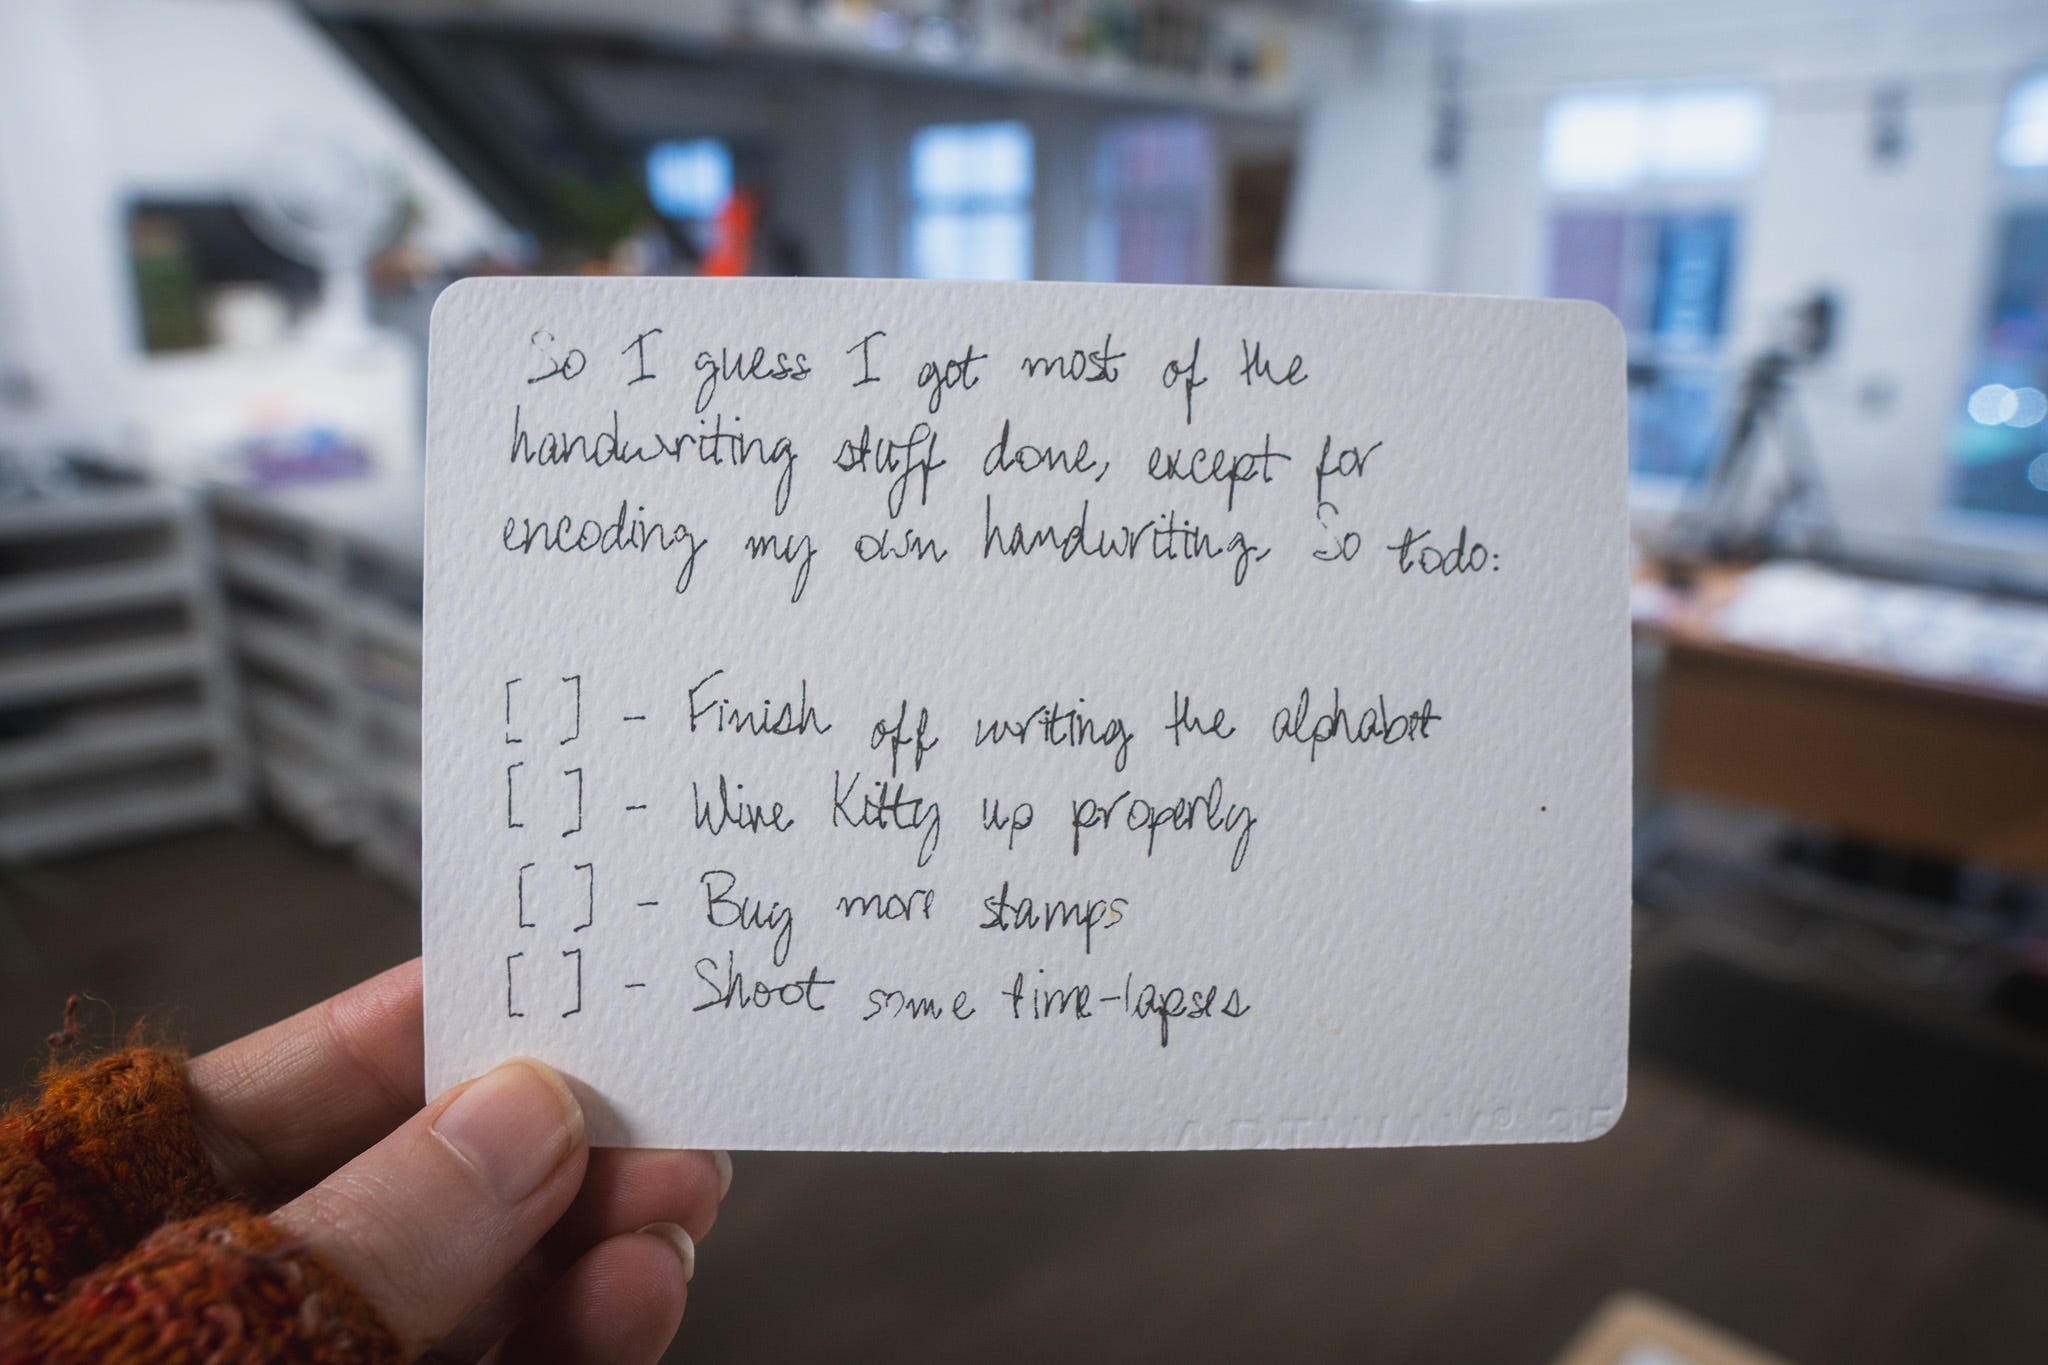 So I guess I got most of the
handwriting stuff done, except for
encoding my own handwriting. So todo:
[ ] - Finish off writing the alphabet
[ ] - Wire Kitty up properly
[ ] - Buy more stamps
[ ] - Shoot some time-lapses